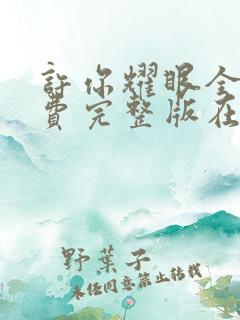 许你耀眼全
费完整版在
野葉子
未经同意禁止转载